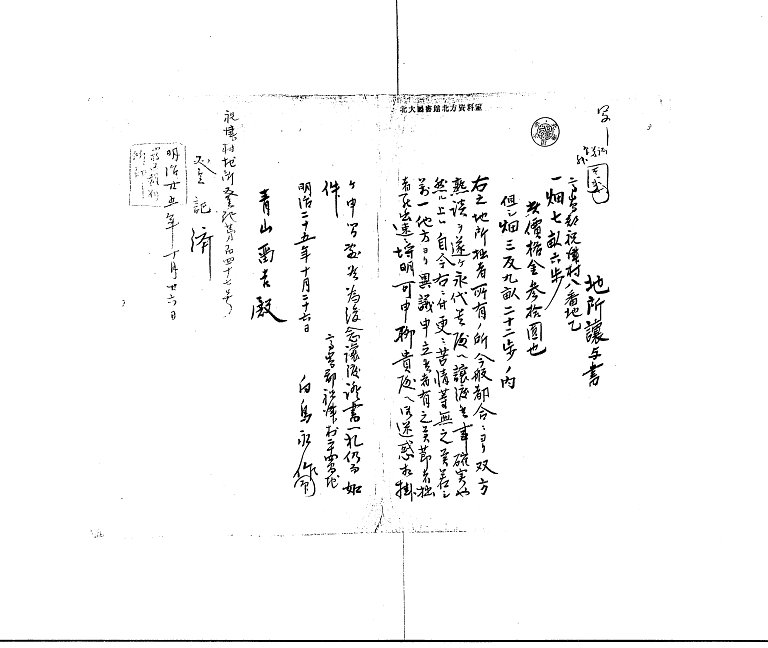 北大圖書館北方資料室
写
地所讓与書
高島郡祝津村八番地乙
一畑七畝六歩
此價格金参拾圓也
但シ畑三反九畝二十二歩ノ内
右之地所拙者所有ノ所今般都合ニヨリ双方
熟談ヲ遂ケ永代貴殿ヘ讓渡候事確実也
然ル上ハ自今右ニ付更ニ苦情等無之万一
一地方ヨリ異議申立候者有之候節者拙
者罷出速埒明可申聊貴殿ヘ御迷惑相掛
ケ申間敷候為後念讓渡証書一札仍而如
件
高島郡祝津村
明治二十五年十月二十六日
白鳥永作
青山留吉殿
祝津村地所登記第百四十七号
登記済
明治廿五年十月廿六日